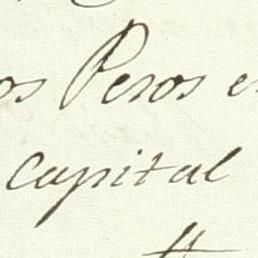 os Pesos e
capital